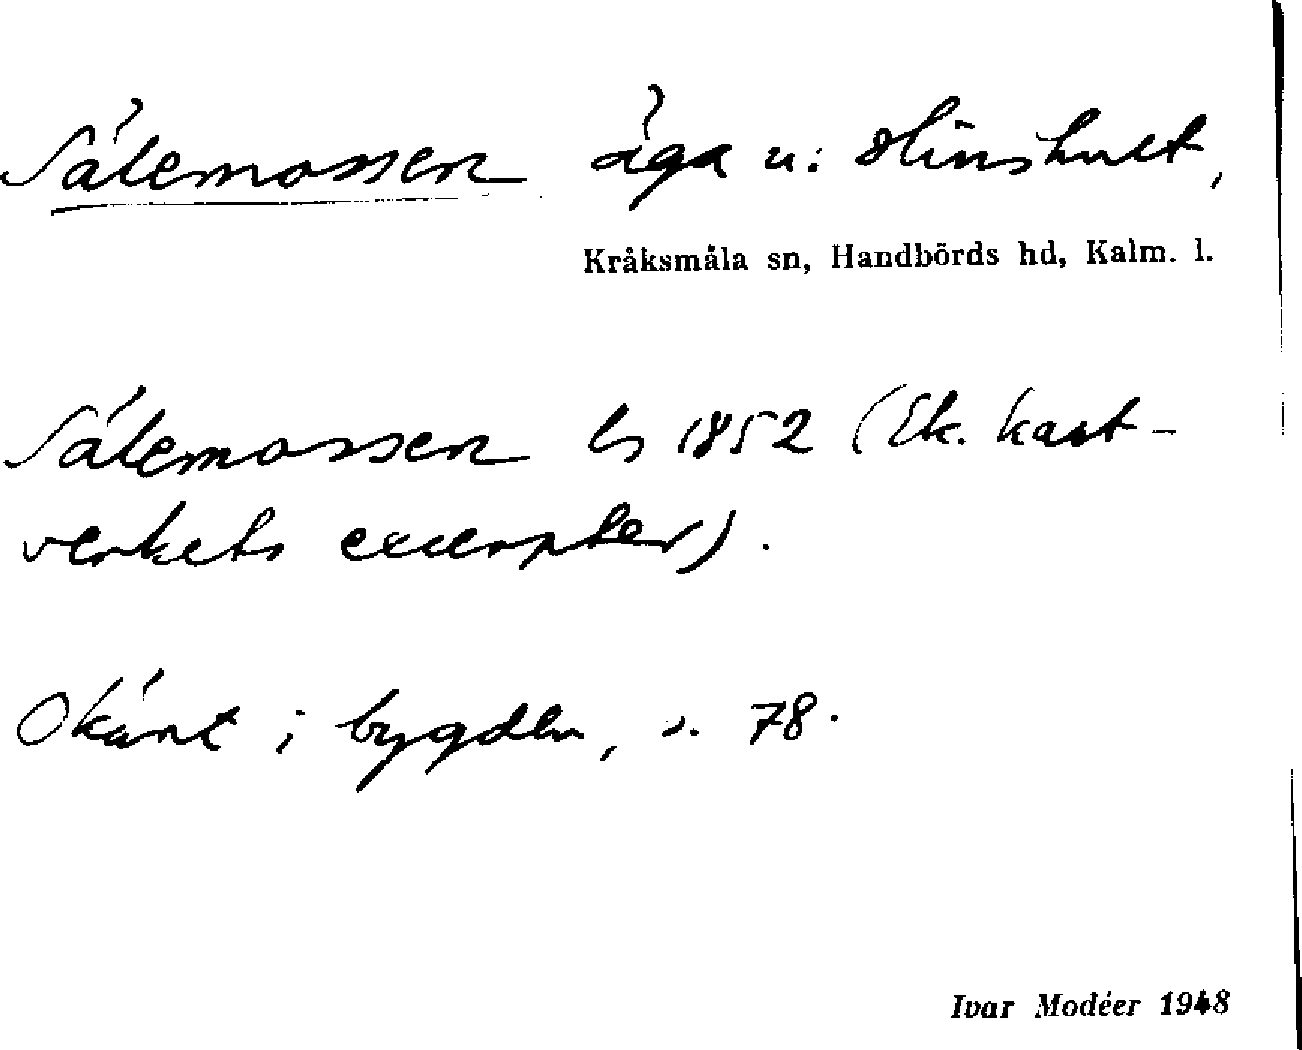 Sälemossen äga u: Hinshult,
Kråksmåla sn, Handbörds hd, Kalm. l.
Sälemossen ls 1852 (Ek. kart-
verkets excerpter).
Okänt i bygden, s. 78.
Ivar Modéer 1948